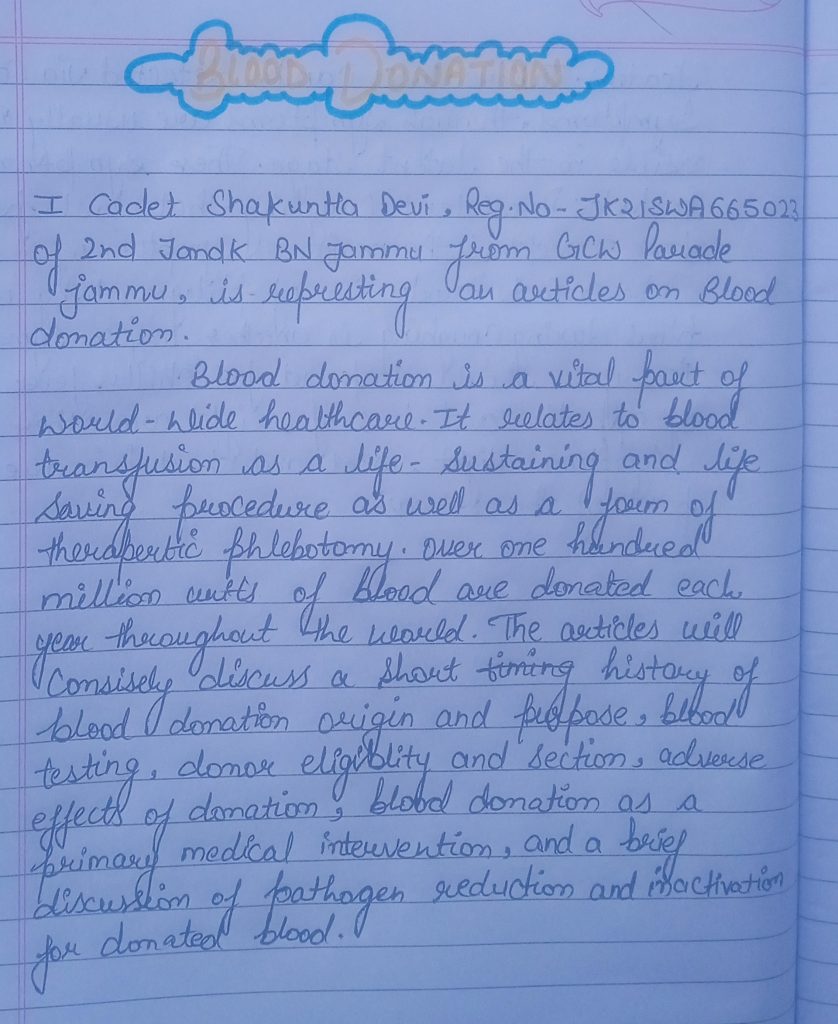 BLOOD DONATION
I Cadet Shakuntla Devi, Reg.No- JK21SWA665023
of 2nd JandK BN Jammu from GCW Parade
jammu, is represting an articles on Blood
donation.
Blood donation is a vital part of
world-wide healthcare. It relates to blood
transfusion as a life- sustaining and life
saving procedure as well as a form of
therapertic phlebotomy. over one hundred
million units of blood are donated each
year throughout the world. The articles will
Consisely discuss a short timing history of
blood donation origin and purpose, blood
testing, donor eligiblity and section, adverse
effects of donation, blood donation as a
primary medical intervention, and a brief
discussion of pathogen reduction and inactivation
for donated blood.